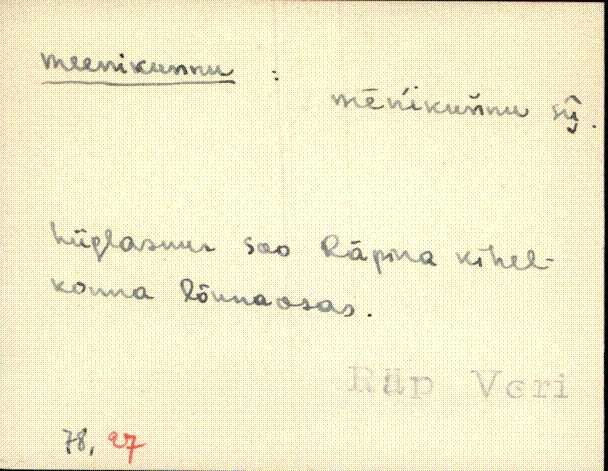 meenikunnu :
mēńikuńnu
hiiglasuur soo Räpina kihel-
konna lõunaosas.
Räp Veri
78, 27